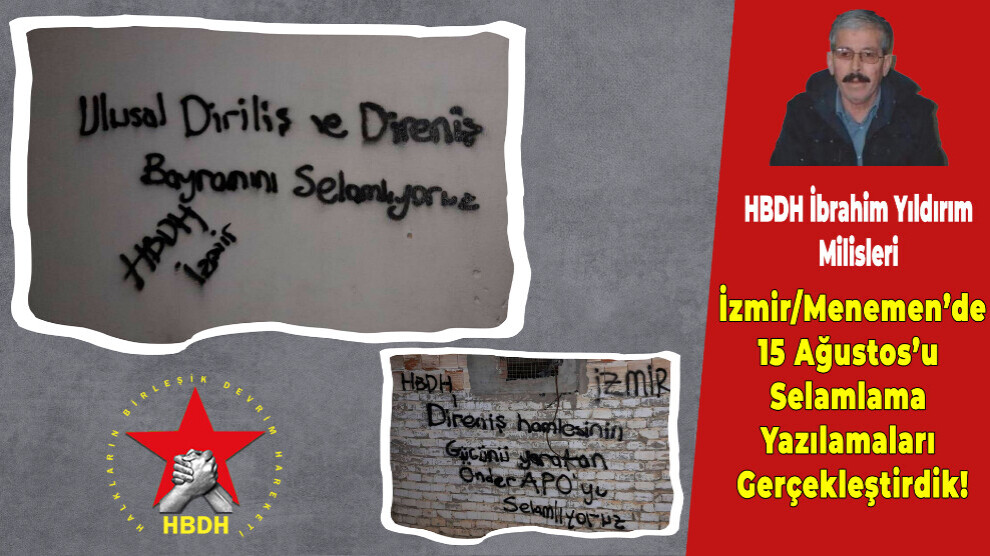 Ulusal Diriliş ve Direniş
Bayramını Selamlıyoruz
HBDH
İzmir
HBDH İZMİR
Direniş hamlesinin
Gücünü yaratan
Önder APO'yu
Selamlıyoruz
HALKLARIN BİRLEŞİK DEVRİM HAREKETİ
HBDH
HBDH İbrahim Yıldırım
Milisleri
İzmir/Menemen’de
15 Ağustos’u
Selamlama
Yazılamaları
Gerçekleştirdik!